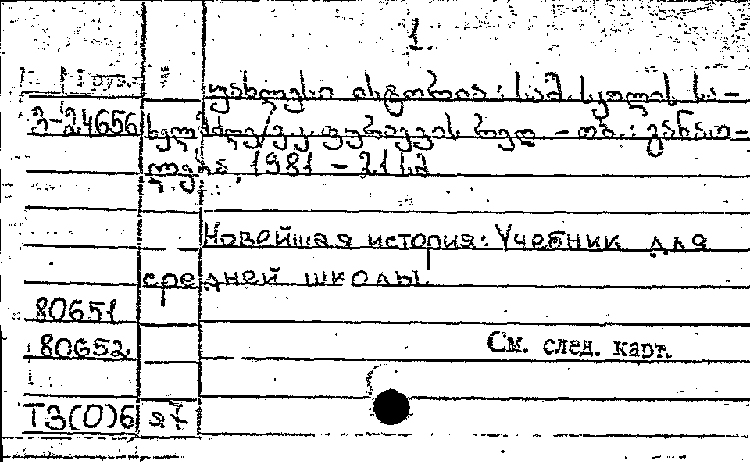 1.
1 груз.
უახლესი ისტორია: საშ. სკოლის სა-
3-24656 ხელმძღვ/ვ.კ. ფურაევის რედ. - თბ.: განათ-
ლება, 1981 - 21 სმ
Новейшая история: Учебник для
средней школы.
80651
80652
См. след. карт.
Т3(0)6 я7